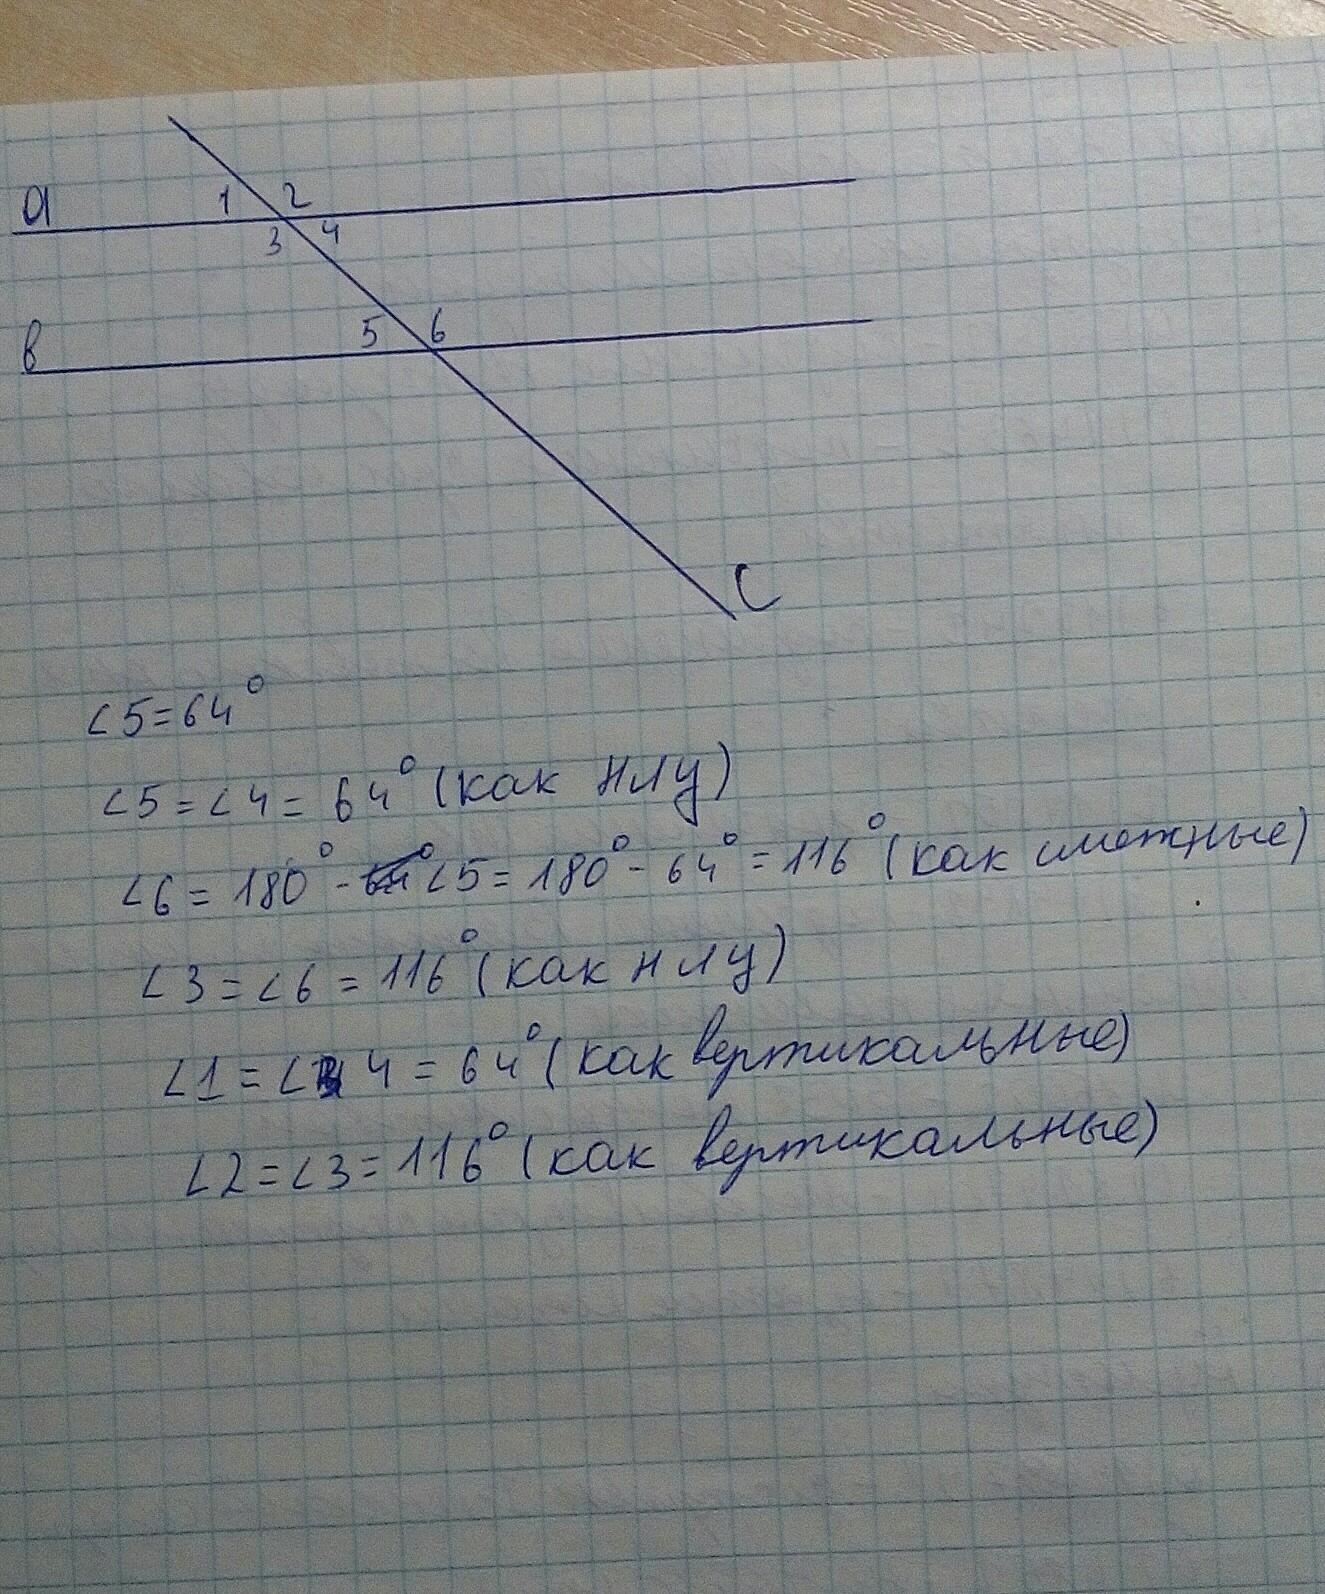 a
1 2
3 4
в
5 6
C
∠5=64°
∠5=∠4=64° (как нлу)
∠6=180°-∠5=180°-64°=116° (как смежные)
∠3=∠6=116° (как нлу)
∠1=∠4=64° (как вертикальные)
∠2=∠3=116° (как вертикальные)